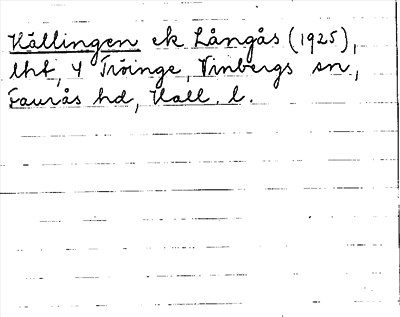 Källingen ek Långås (1925),
lht, 4 Tröinge, Vinbergs sn,
Faurås hd, Hall. l.